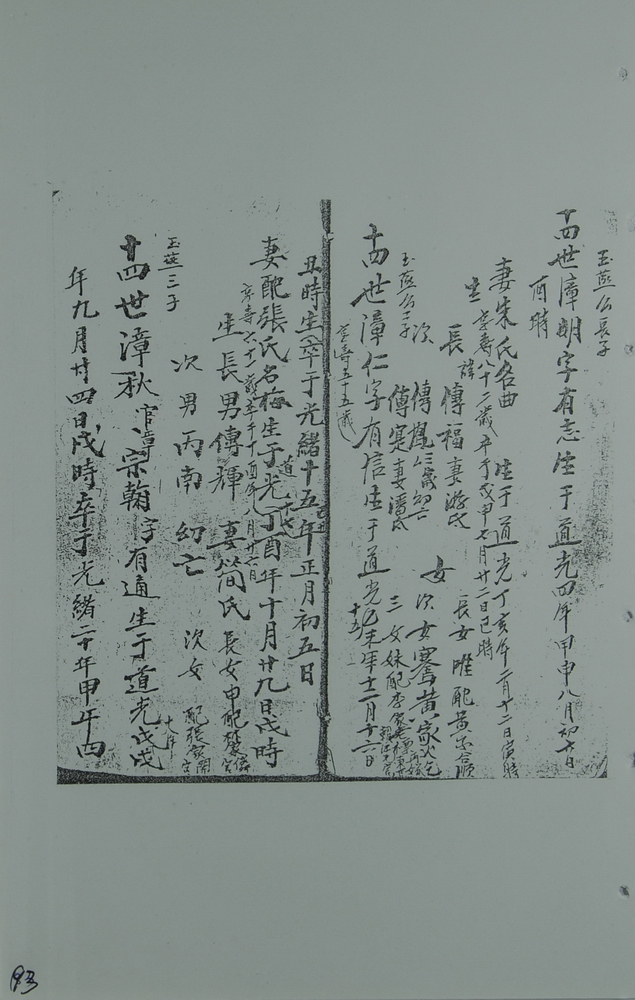 玉燕公長子
十四世漳明字有志生于道光四年甲申八月初七日
酉時
妻朱氏名曲 生于道光丁亥年二月十二日寅時
生 享壽八十二歲卒于戊申七月廿二日巳時
長 諱傳福妻游氏 女 長女唯配
次 傳 歲幼亡 次女騫黃家
傳寔妻潘氏 三女妹配李家
玉燕公二子
十四世漳仁字有信生于道光十五乙未年十二月十六日
享壽五十五歲
丑時生卒于光緒十五年正月初五日
妻配張氏名梅生于道光十七丁酉年十月廿九日戌時
享壽六十一歲卒于丁酉年八月廿六日
生長男傳輝 妻簡氏 長女申配
次男丙南 幼亡 次女 配張家
玉燕三子
十四世漳秋官諱宗翰字有通生于道光戊戌十八年
年九月廿四日戌時卒于光緒二十年甲午四
93